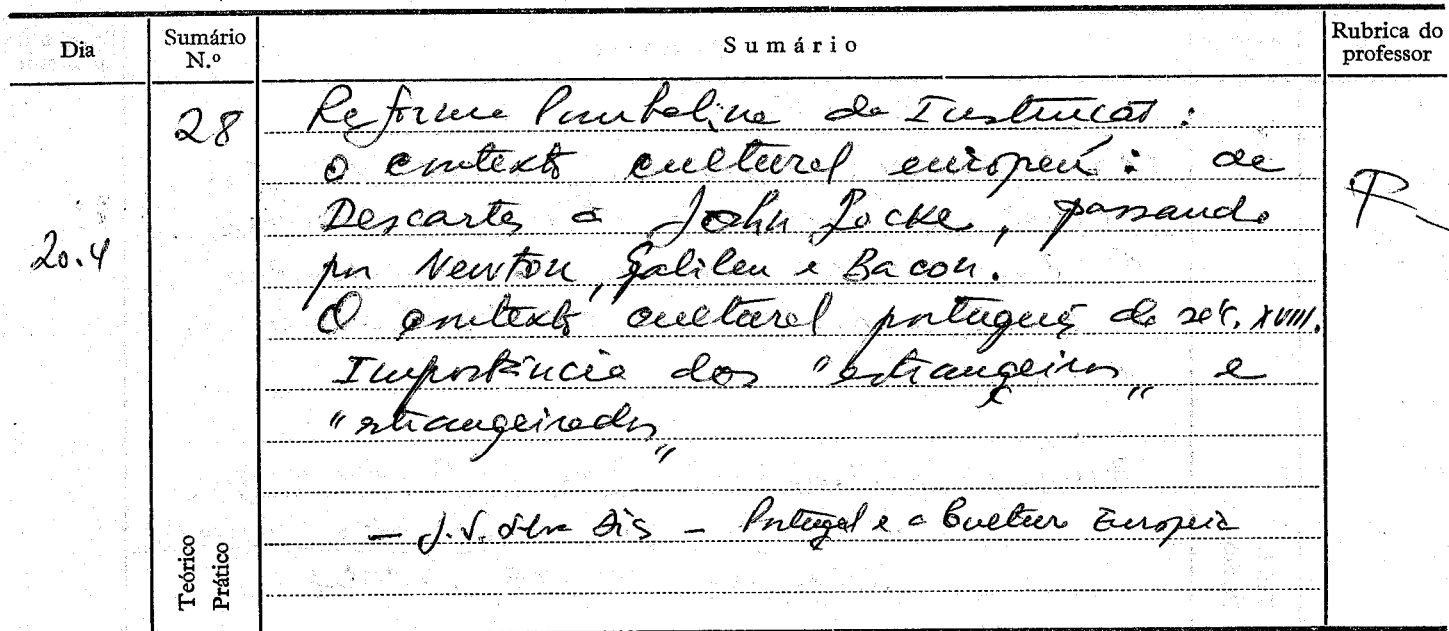 Dia
Sumário N.º
Sumário
Rubrica do professor
20.4
28
Reforma Pombalina da Instrução:
o contexto cultural europeu: de
Descartes a John Locke, passando
por Newton, Galileu e Bacon.
O contexto cultural português do séc. XVIII.
Importância dos "estrangeiros" e
"estrangeirados"
— J. S. Silva Dias — Portugal e a Cultura Europeia
Teórico
Prático